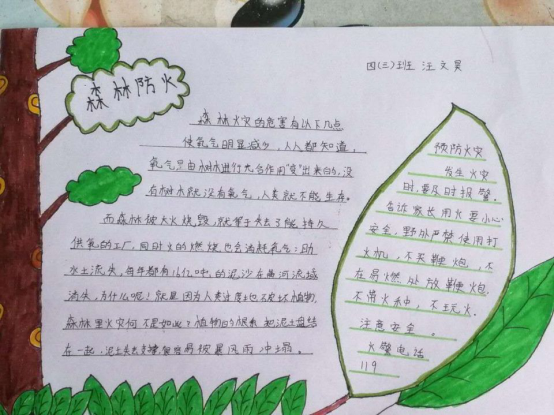 森林防火
四(三)班 汪文昊
森林火灾的危害有以下几点
使氧气明显减少,人人都知道,
氧气是由树木进行光合作用"变"出来的,没
有树木就没有氧气,人类就不能生存。
而森林被大火烧毁,就等于失去了能持久
供氧的工厂,同时火的燃烧也会消耗氧气;助
水土流失,每年都有16亿吨的泥沙在黄河流域
流失,为什么呢?就是因为人类过度地破坏植物,
森林里火灾何不是如此?植物的根系把泥土盘结
在一起,泥土失去支撑很容易被暴风雨冲塌。
预防火灾
发生火灾
时,要及时报警.
告诉家长用火要小心
安全,野外严禁使用打
火机,不买鞭炮,不
在易燃处放鞭炮.
不带火种,不玩火.
注意安全.
火警电话
119